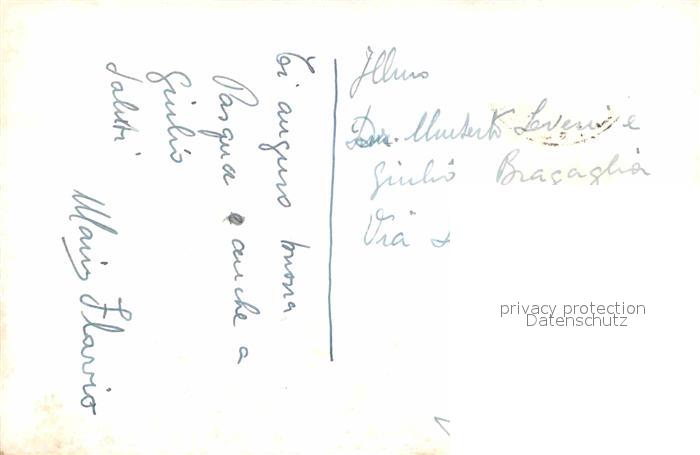 Ti auguro buona
Pasqua e anche a
Giulio
Saluti
Mario Flavio
Illmo
Dr. Umberto
Giulio Bragaglia
Via
privacy protection
Datenschutz